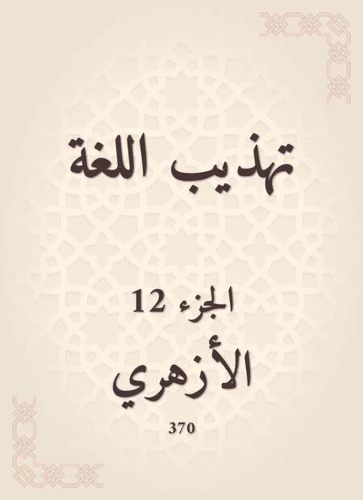 تهذيب اللغة
الجزء 12
الأزهري
370